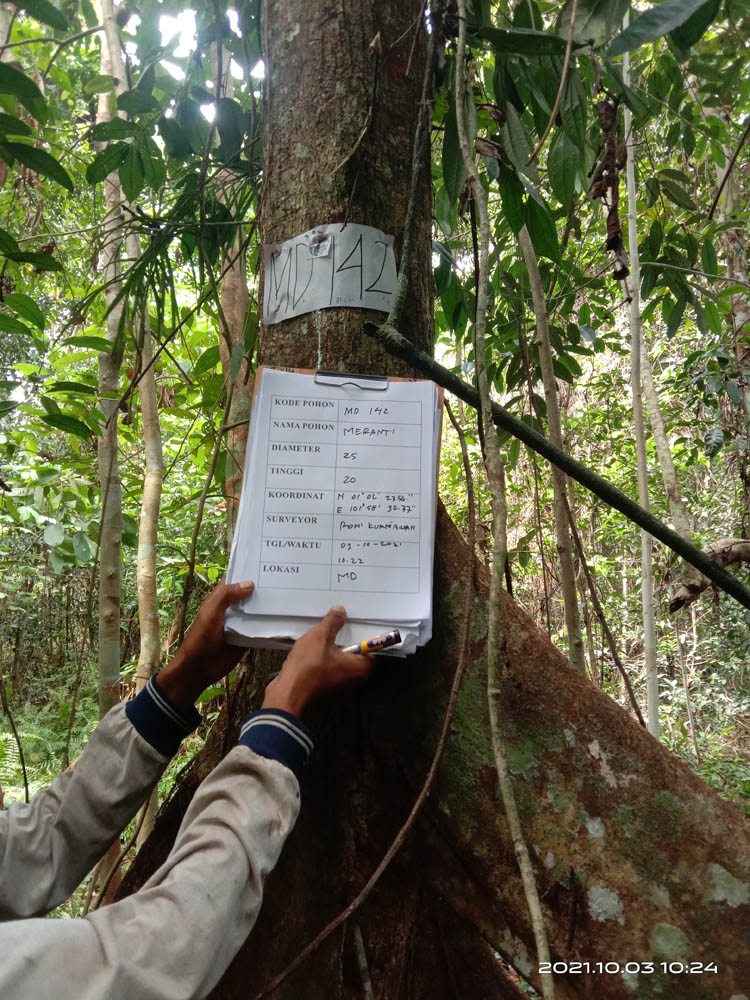 MD 142
KODE POHON MD 142
NAMA POHON MERANTI
DIAMETER 25
TINGGI 20
KOORDINAT N 01° 02' 27.56"
E 101° 58' 32.77"
SURVEYOR RONI KURNIAWAN
TGL/WAKTU 03-10-2021
10.22
LOKASI MD
2021.10.03 10:24